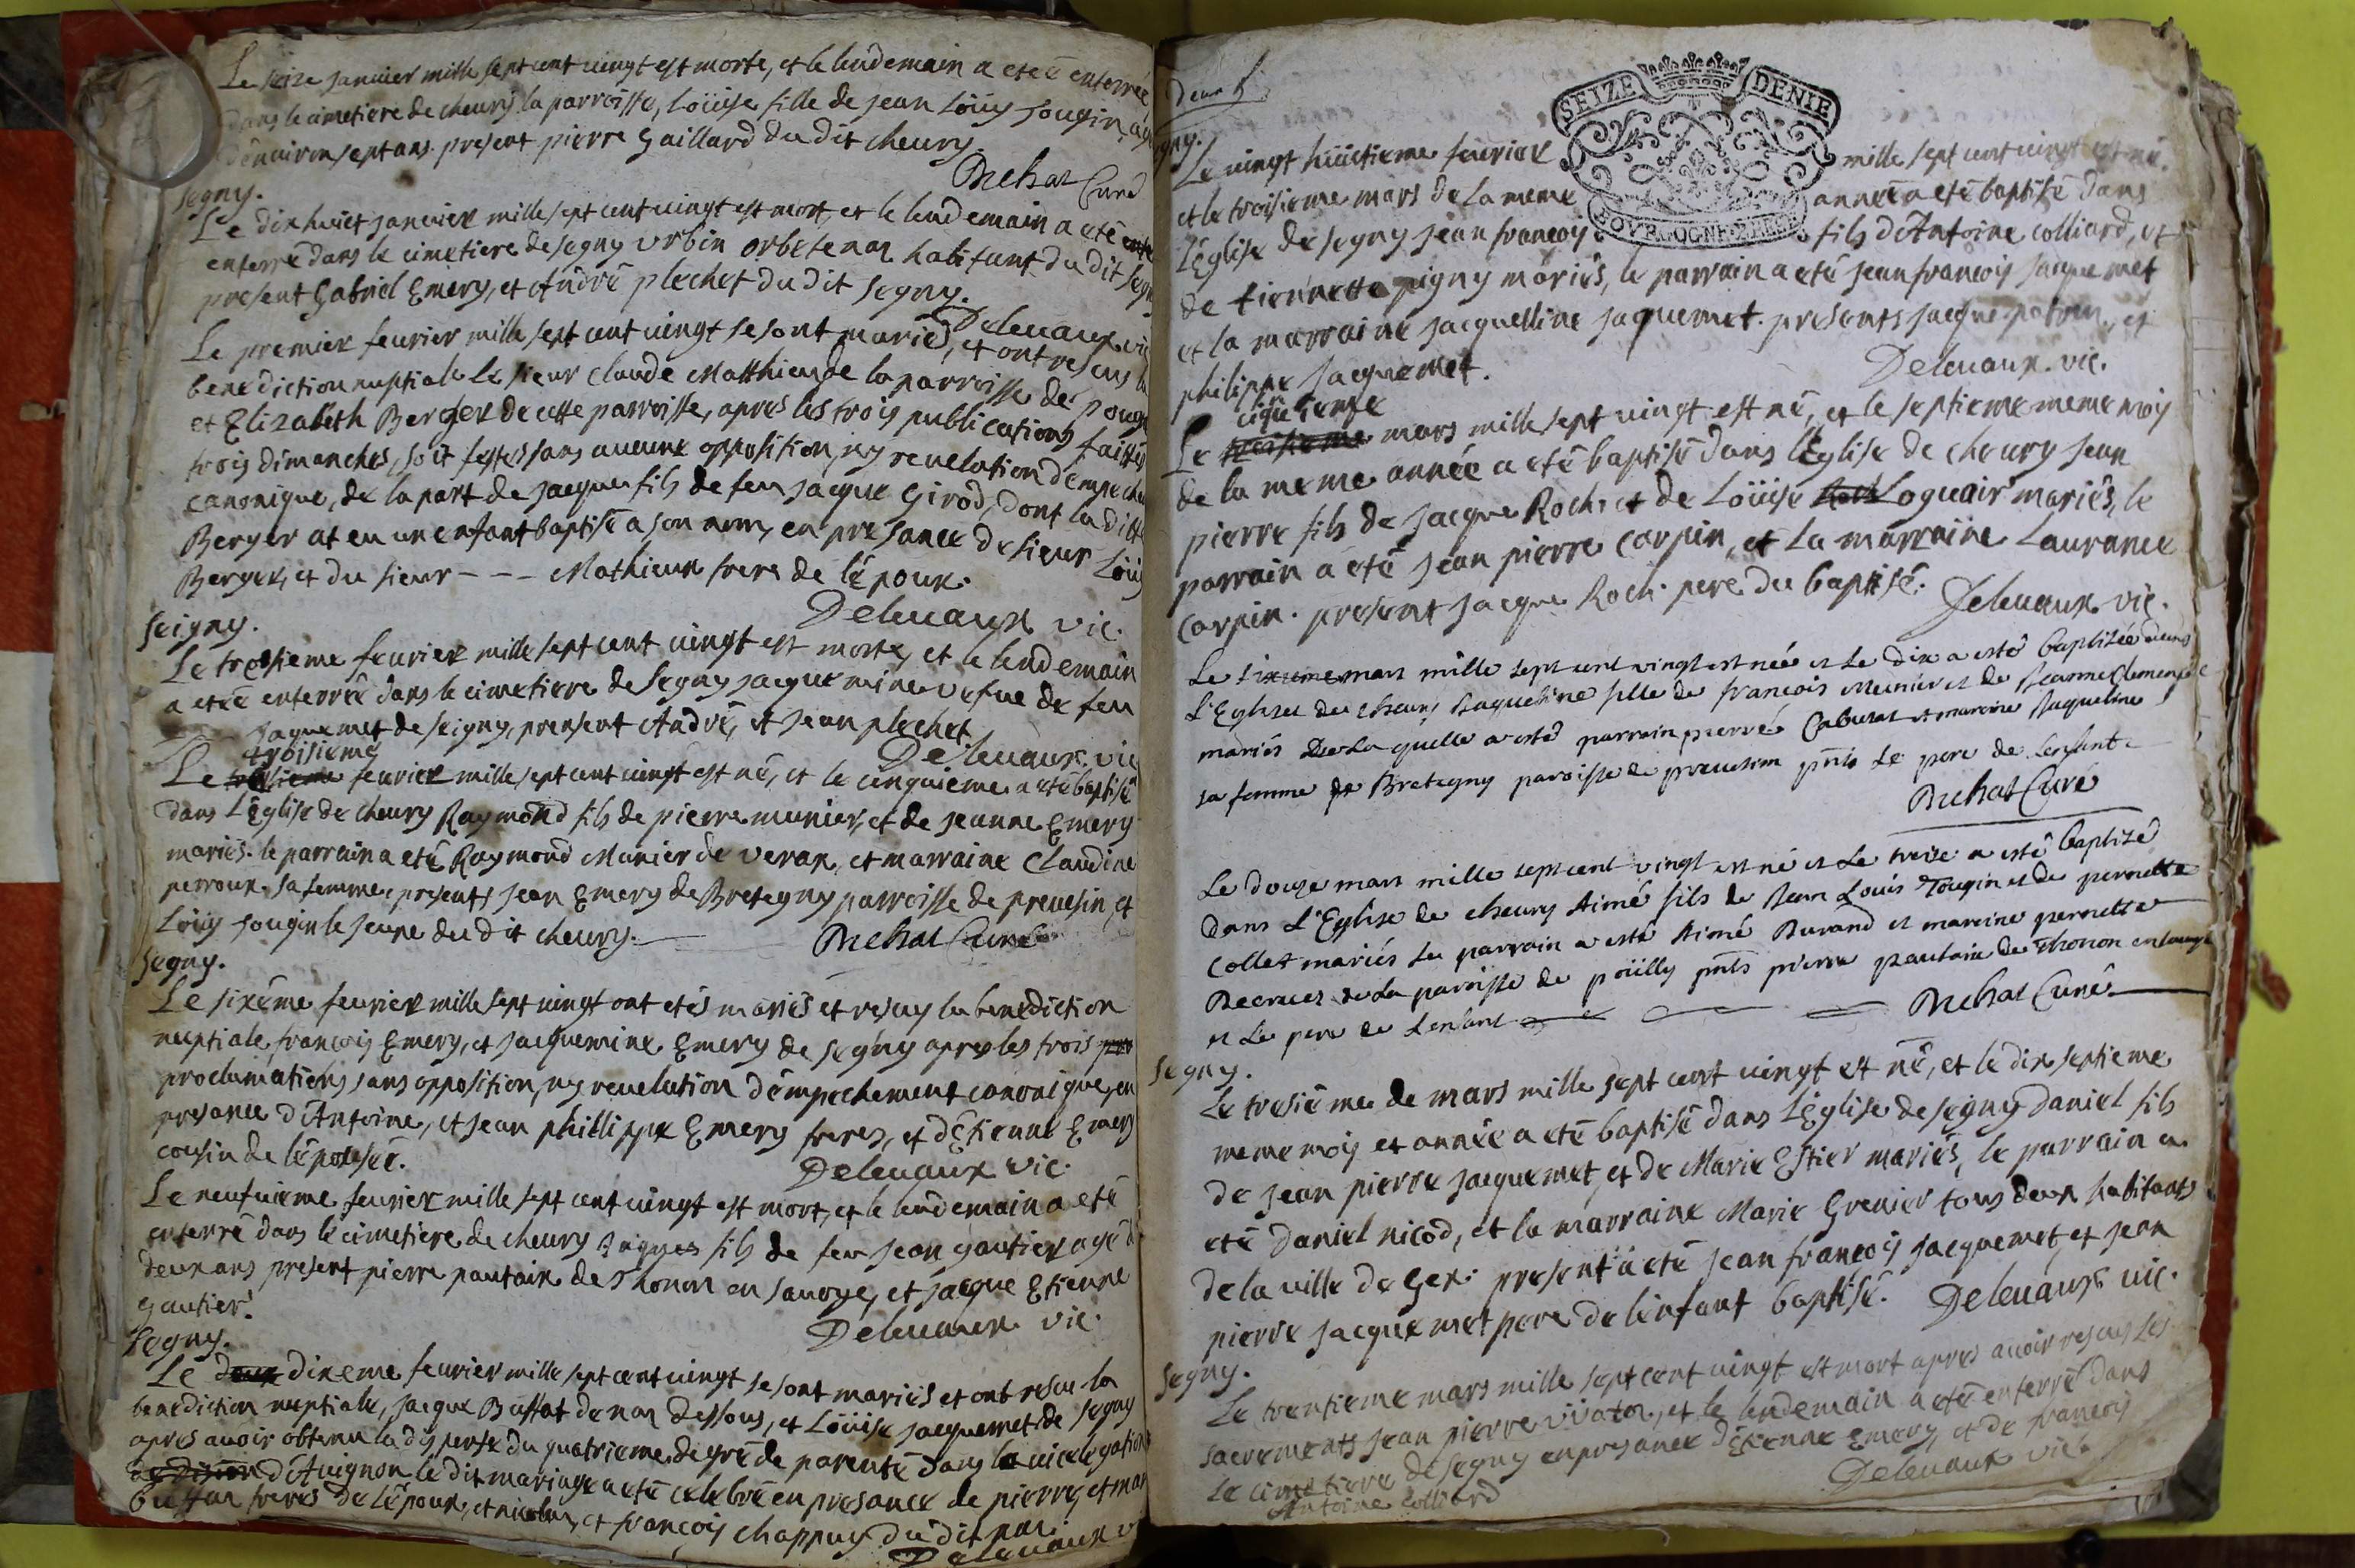 Le seize januier mille sept cent uingt est morte, et le lendemain a eteé enterrée
dans le cimetiere de cheury la parroisse, Loüise fille de jean Loüis fougin,
denuiron sept ans. present pierre Gaillard du dit cheury.
Curé
segny.
Le dix huiet januier mille sept cent uingt est mort, et le lendemain a eté
enterré dans le cimetiere de segny urbin orbetenar habitant du dit
present Gabriel Emery, et André plechet du dit segny.
Deleuaux
Le premier feurier mille sept cent uingt se sont mariés, et ont reseus
benediction nuptiale le sieur claude Matthieu de la parroisse de
et Elizabeth Berger de cette parroisse, apres les trois publications faittes
trois dimanches, soit festes sans aucune opposition, ny reuelation
canonique, de la part de jacque fils de feu jacque Girod, dont la ditte
Berger at eu un enfant baptisé a son nom, en presance de sieur Loüis
Berger, et du sieur - - - Mathieux frere de lépoux.
Deleuaux vic.
seigny.
Le trosieme feurier mille sept cent uingt est morte, et le lendemain
a eteé enterrée dans le cimetiere de segny jacquemine uefue de feu
jaquemet de seigny, present André, et jean plechet
Deleuaux vic
troisieme
Le feurier mille sept cent uingt est né, et le cinquieme a eté baptisé
dans L'Eglise de cheury Raymond fils de pierre munier, et de jeanne Emery
mariés. le parrain a eté Raymond Munier de verax, et marraine Claudine
perroux sa femme, presents jean Emery de Bretegny parroisse de preuesin, et
Loüis fougin le jeune du dit cheury.
Curé
segny.
Le sixéme feurier mille sept uingt ont etés mariés et reseus la benediction
nuptiale françois Emery, et jacquemine Emery de segny apres les trois
proclamations sans opposition, ny reuelation d'empechement canonique, en
presance d'Antoine, et jean phillippe Emery freres, et d'Etienne Emery
cousin de lépouseé.
Deleuaux vic.
Le neufuieme feurier mille sept cent uingt est mort, et le lendemain a eté
enterré dans le cimetiere de cheury fils de feu jean gautier agé
deux ans present pierre pautaix de Thonon en sauoye, et jacque Etienne
gautier.
Deleuaux vic.
segny.
Le dixeme feurier mille sept cent uingt se sont mariés et ont reseu la
benediction nuptiale, jacque Buffat de nax dessous, et Loüise jacquemet de segny
apres auoir obtenu la dispense du quatrieme degré de parenté dans la uicelegation
d'Auignon le dit mariage a eté celebré en presance de pierre, et
freres de lépoux, et et françois chappuy du dit nax.
Deleuaux
SEIZE DENIE
BOURGOGNE
deux
Le uingt hüictieme feurier mille sept cent uingt est né.
et le troisieme mars de la meme année a eté baptisé dans
L'Eglise de segny jean françois fils d'Antoine colliard, et
de tiennette pigny mariés, le parrain a eté jean françois jacquemet
et la marraine jacquelline jaquemet. presents jacque et
philippe jacquemet.
Deleuaux. vic.
Le mars mille sept uingt est né, et le septieme meme mois
de la meme année a eté baptisé dans L'Eglise de cheury jean
pierre fils de jacque Roch, et de Loüise Loguair mariés, le
parrain a eté jean pierre carpin, et la marraine Laurance
carpin. present jacque Roch pere du baptisé.
Deleuaux vic.
Le sixieme mars mille sept cent vingt est née et le dix a esté baptizée dans
L'Eglise de cheury Jaqueline fille de francois Meunier et de Jeanne
mariés de laquelle a esté parrain pierre et maraine Jaqueline
sa femme de Bretegny paroisse de preuesin pnts le pere de Lenfant
Curé
Le douze mars mille sept cent vingt est né et le treize a esté baptizé
dans L'Eglise de cheury Aimé fils de Jean Louis fougin et de pernette
Collet mariés le parrain a esté Aimé Durand et maraine pernette
de la paroisse de poüilly pnts pierre pautaix de Thonon en
et le pere de Lenfant
Curé
segny.
Le tresiéme de mars mille sept cent uingt est né, et le dix septieme
meme mois et année a eté baptisé dans L'Eglise de segny Daniel fils
de jean pierre jacquemet, et de Marie Estier mariés, le parrain a
eté Daniel nicod, et la marraine Marie Grenier tous deux habitants
de la uille de Gex. present a eté jean françois jacquemet, et jean
pierre jacquemet pere de lénfant baptisé.
Deleuaux vic.
segny.
Le trentieme mars mille sept cent uingt est mort apres auoir reseus les
sacrements jean pierre et le lendemain a eté enterré dans
Le cimetiere de segny en presance d'Etienne Emery, et de françois
Antoine colliard
Deleuaux vic.